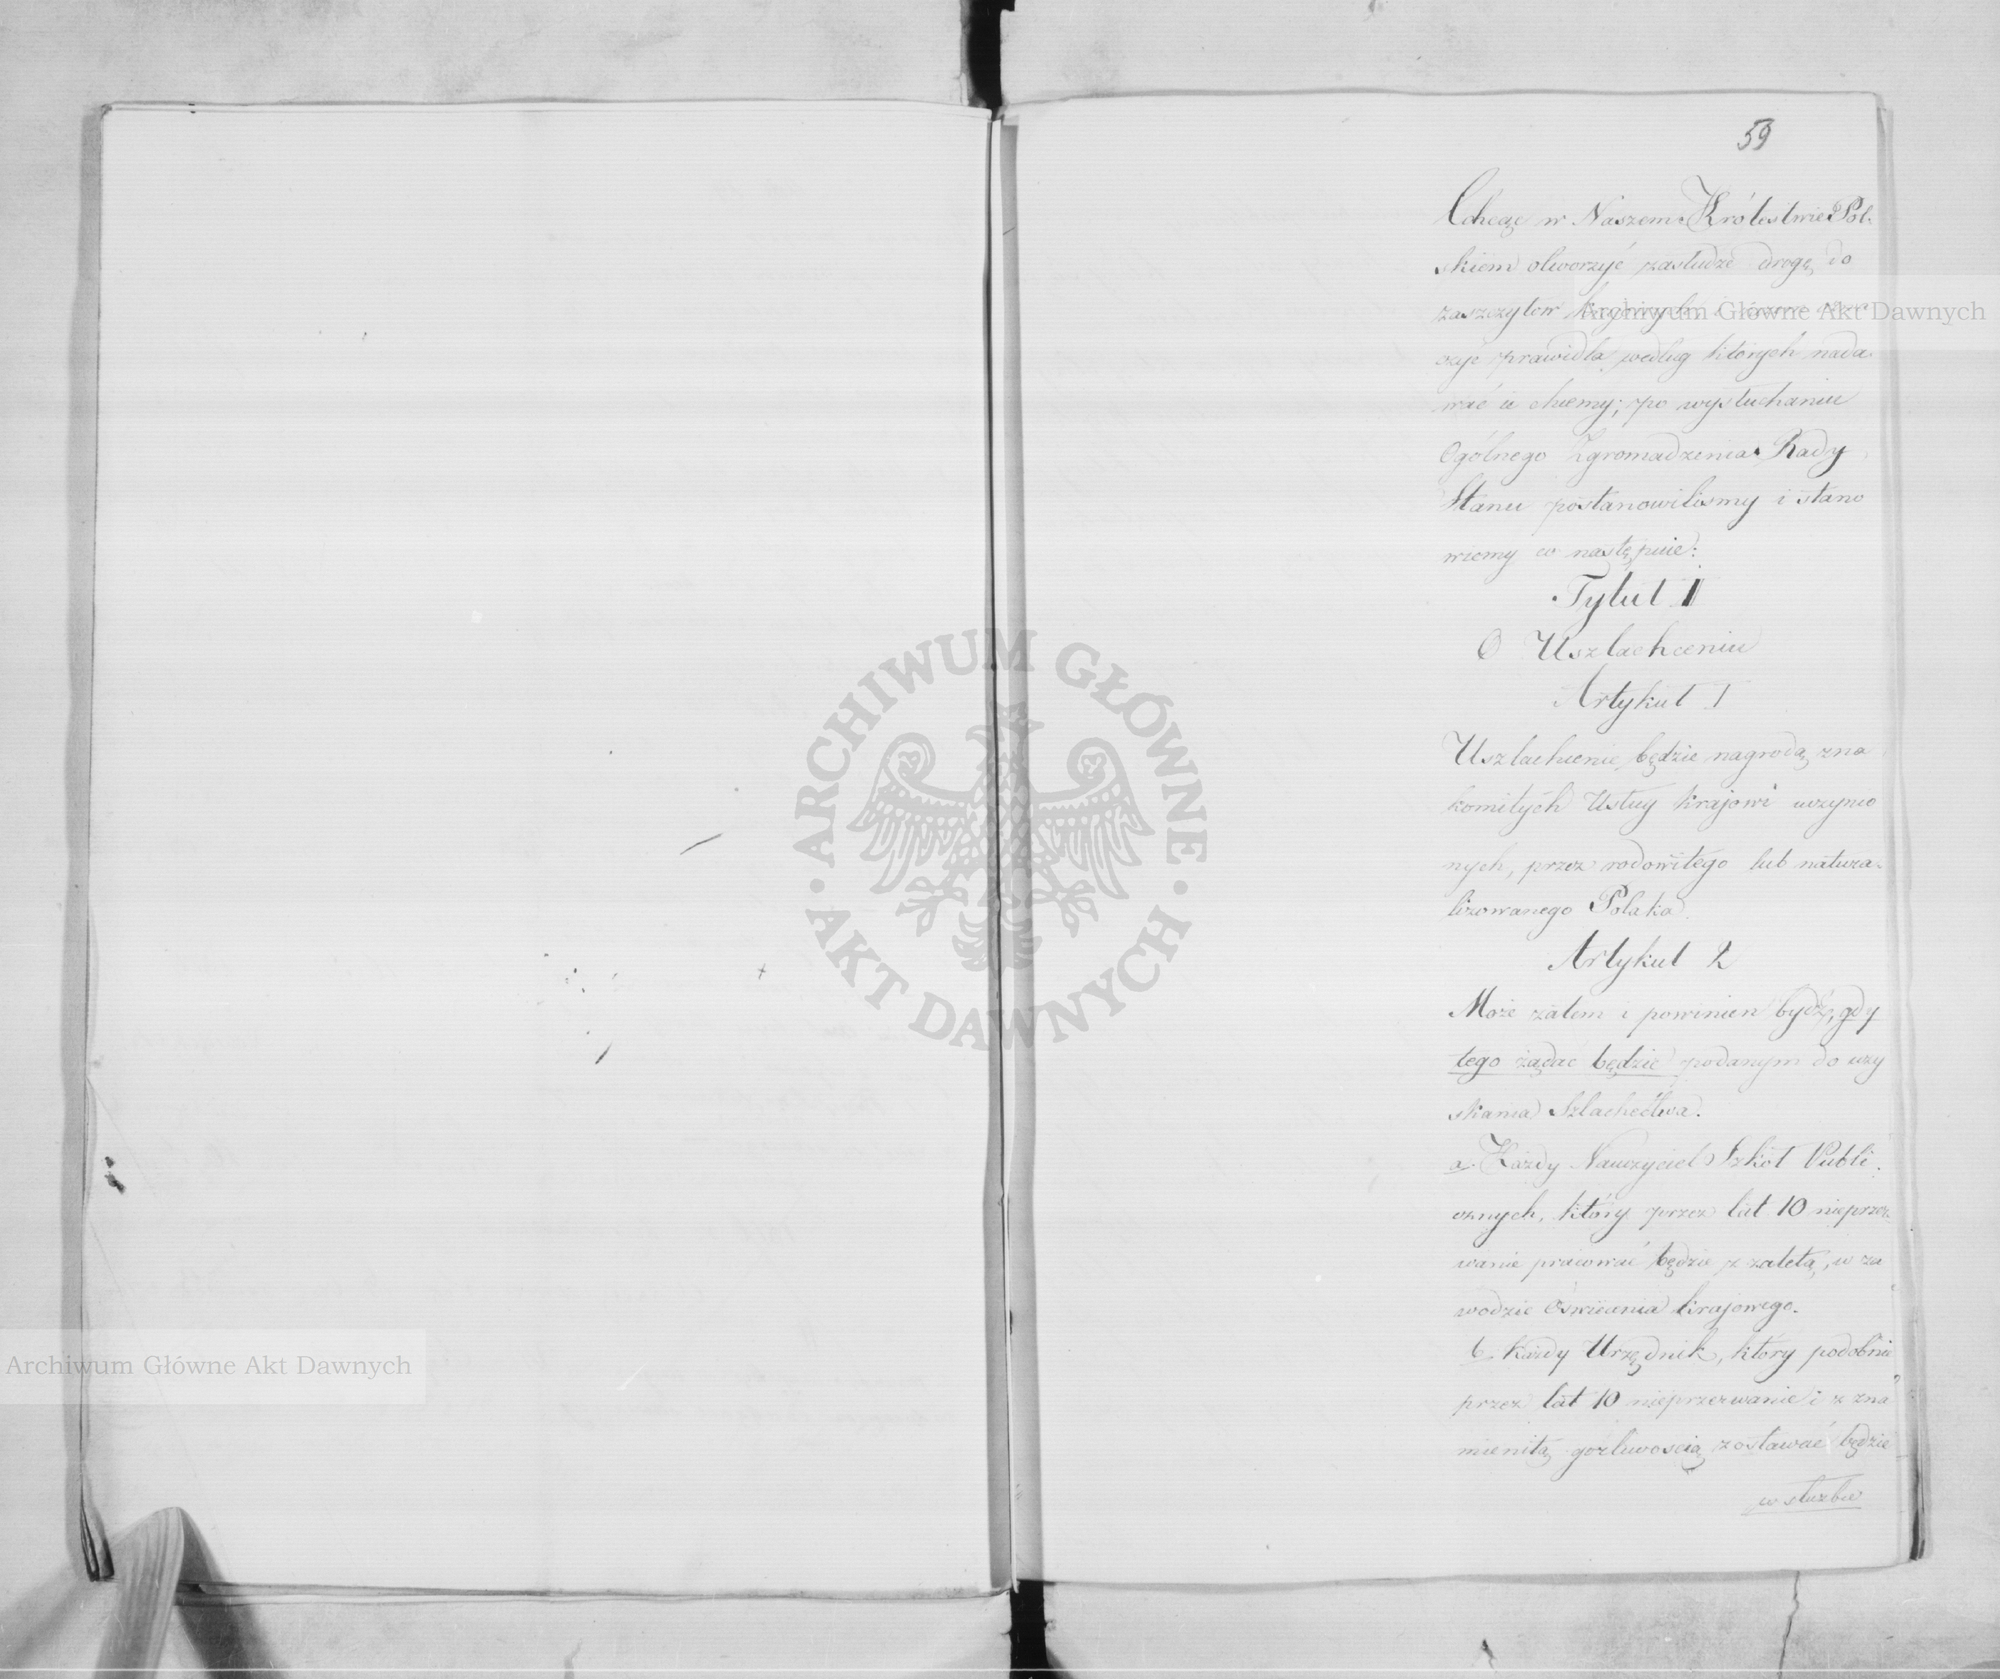 59
Chcąc w Naszem Królestwie Pol-
skiem otworzyć zasłudze drogę do
zaszczytów krajowych i
prawidła według których nada-
wać je chcemy; po wysłuchaniu
Ogólnego Zgromadzenia Rady
Stanu postanowiliśmy i stano
wiemy co następuie:
Tytuł I
O Uszlachceniu
Artykuł I
Uszlachcenie będzie nagrodą zna
komitych Usług krajowi uczynio
nych, przez rodowitego lub natura-
lizowanego Polaka.
Artykuł 2
Może zatem i powinien bydź, gdy
tego żądać będzie podanym do uzy
skania Szlachectwa.
a. Każdy Nauczyciel Szkół Publi
cznych, który przez lat 10 nieprzer-
wanie pracować będzie z zaletą, w za
wodzie Oświecania krajowego.
b. Każdy Urzędnik, który podobnie
przez lat 10 nieprzerwanie i z zna
mienitą gorliwością zostawać będzie
w służbie
Archiwum Główne Akt Dawnych
Archiwum Główne Akt Dawnych
ARCHIWUM GŁÓWNE
AKT DAWNYCH